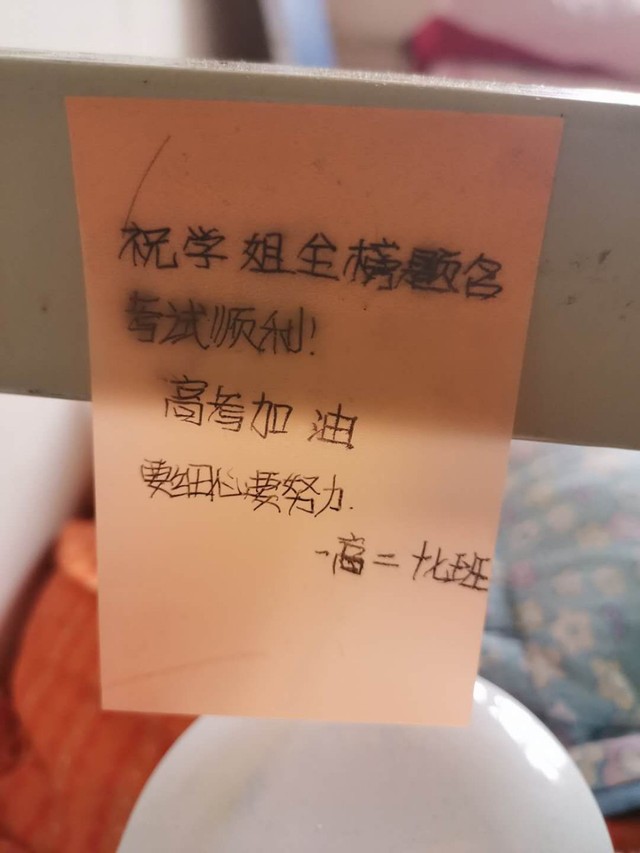 祝学姐金榜题名
考试顺利!
高考加油
要细心要努力.
-高二 班